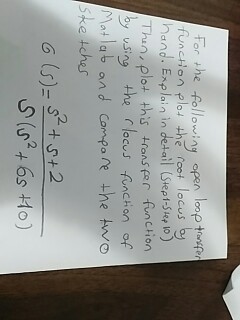 For the following open loop transfer
function plot the root locus by
hand. Explain in detail (Step1-Step10)
Then, plot this transfer function
by using the rlocus function of
Matlab and compare the two
sketches
G(s) = s²+s+2
s(s²+6s+10)